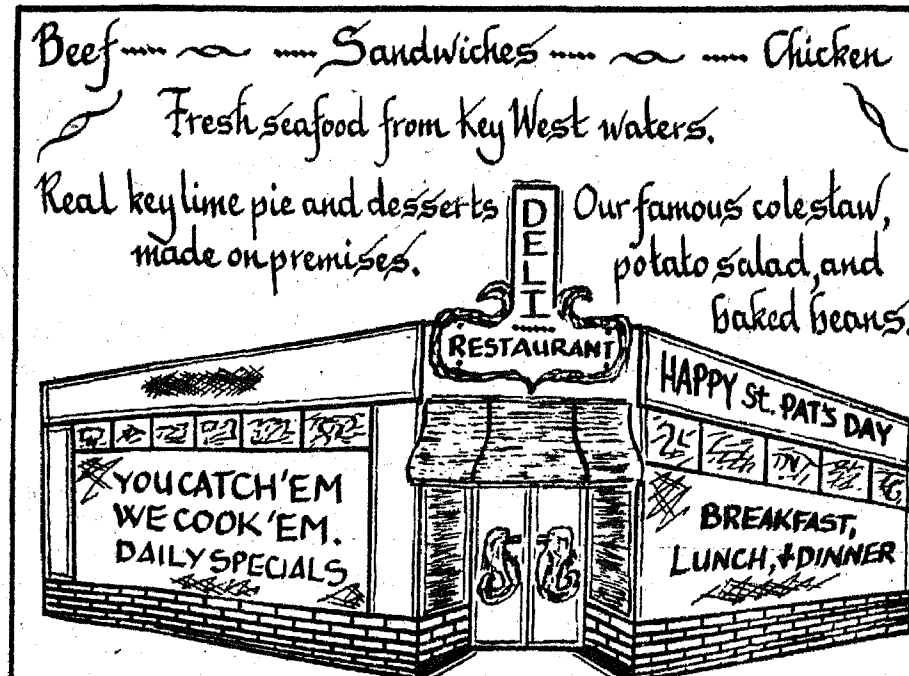 Beef Sandwiches Chicken
Fresh seafood from Key West waters.
Real key lime pie and desserts
made on premises.
Our famous coleslaw,
potato salad, and
baked beans.
DELI
RESTAURANT
HAPPY St. PAT'S DAY
YOU CATCH 'EM
WE COOK 'EM.
DAILY SPECIALS
BREAKFAST,
LUNCH, & DINNER